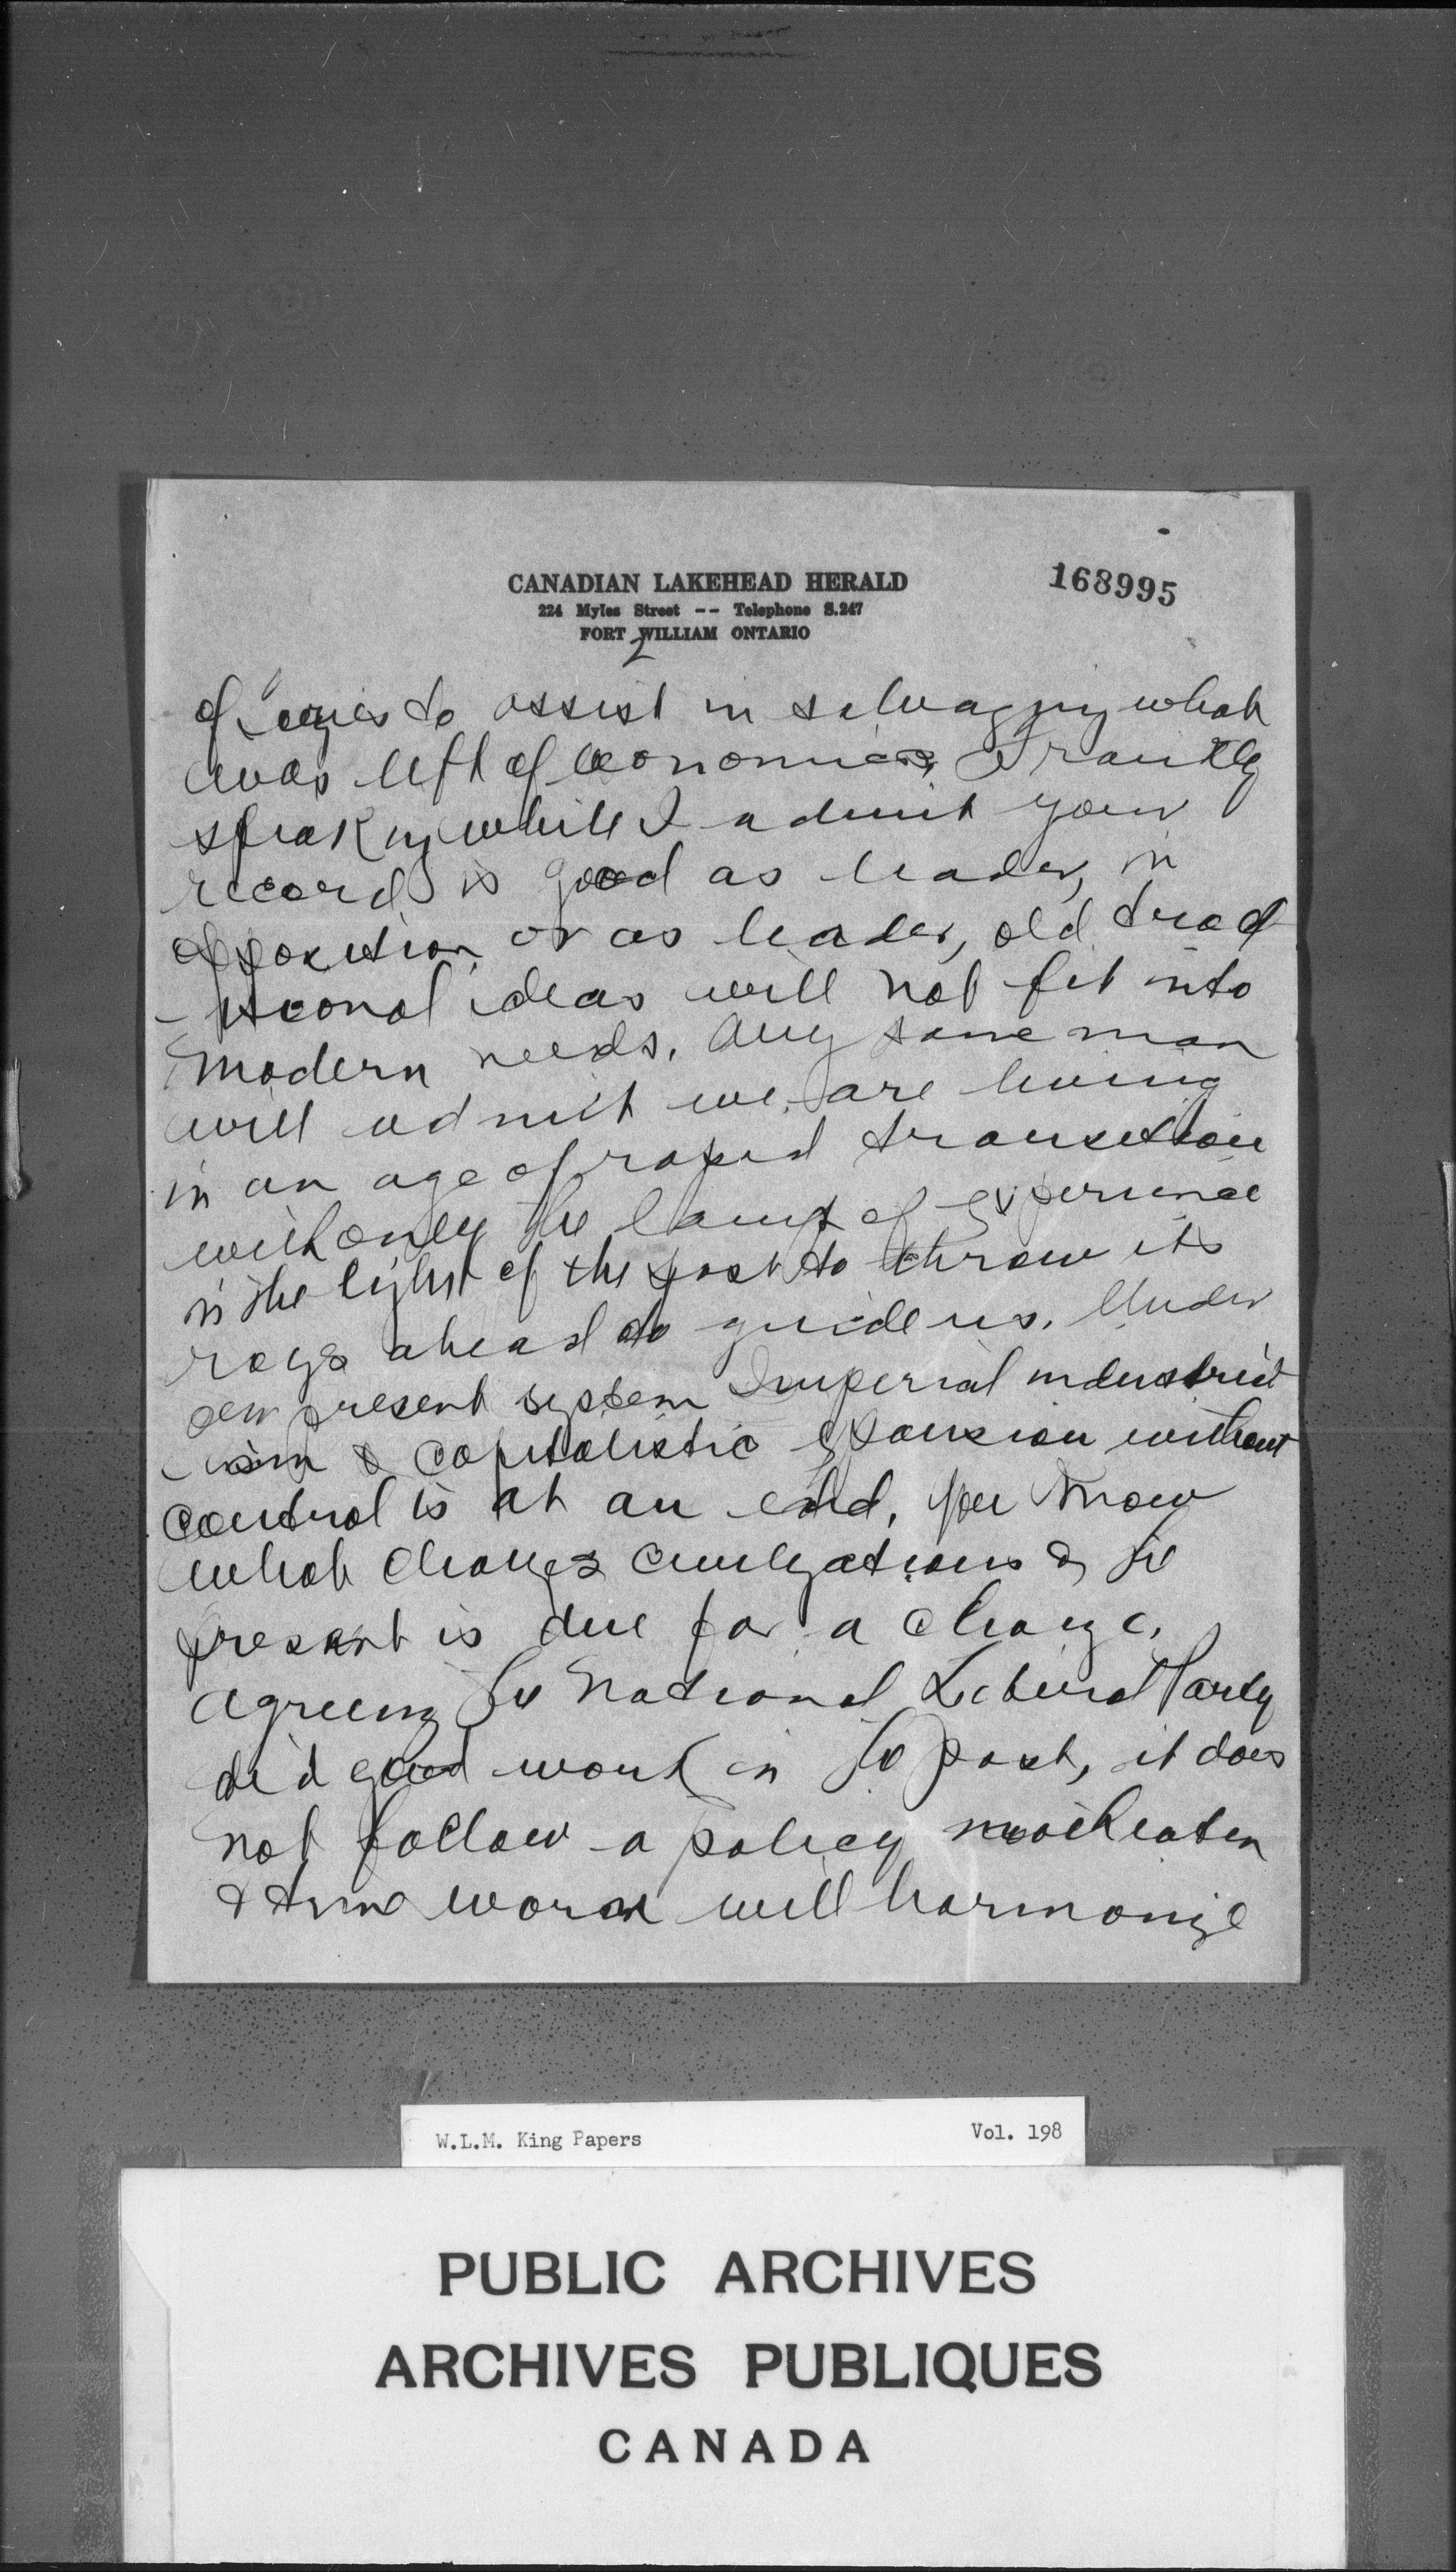 CANADIAN LAKEHEAD HERALD
168995
224 Myles Street -- Telephone S.247
FORT WILLIAM ONTARIO
2
to assist in salvaging what
was left of economics, Frankly
speaking while I admit your
record is good as leader, in
opposition or as leader, old trad
-itional ideas will not fit into
modern needs. Any sane man
will admit we are living
in an age of rapid transition
with only the lamp of experience
in the light of the past to throw its
rays ahead to guide us. Under
our present system Imperial industrial
-ism & capitalistic expansion without
control is at an end, you know
what changes civilizations & the
present is due for a change.
Agreeing the National Liberal Party
did good work in the past, it does
not follow a policy
& time worn will harmonize
W.L.M. King Papers
Vol. 198
PUBLIC ARCHIVES
ARCHIVES PUBLIQUES
CANADA